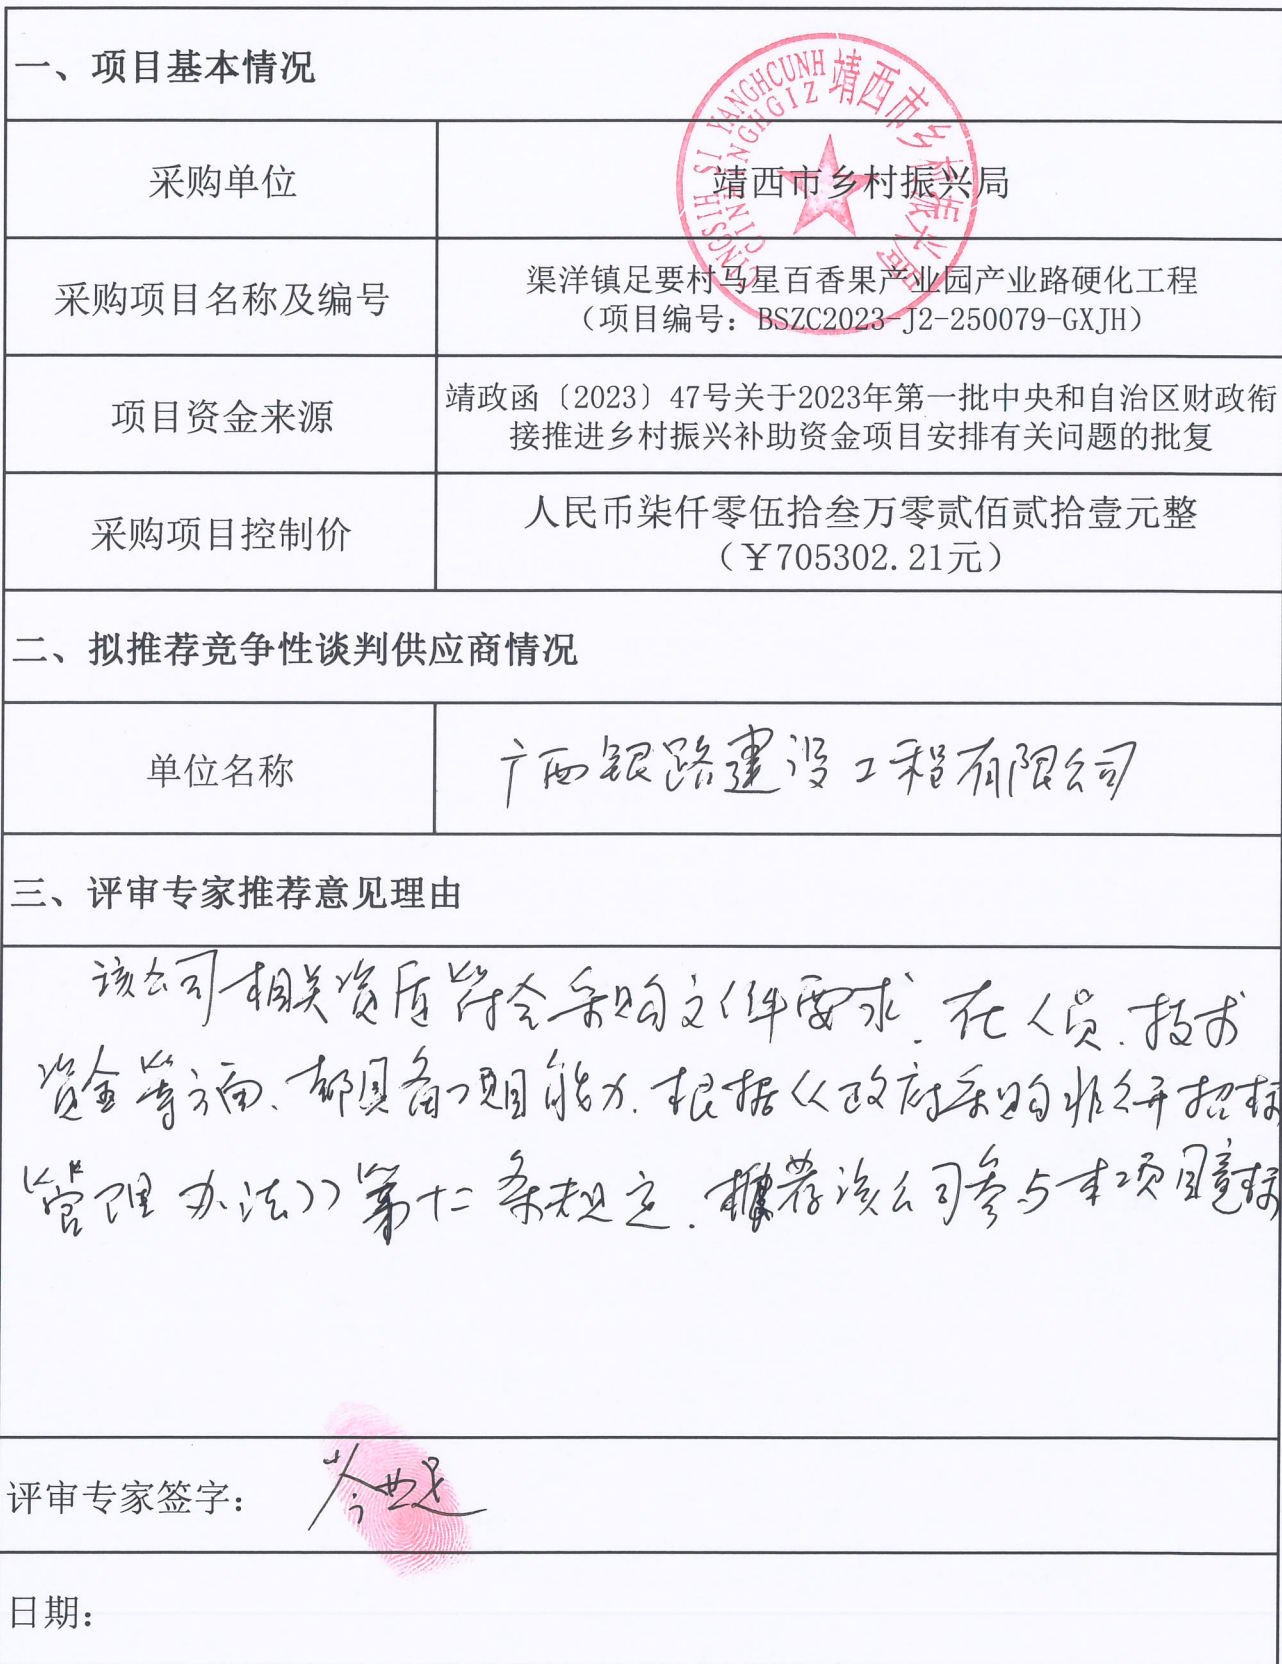 一、项目基本情况
采购单位
靖西市乡村振兴局
CINGSIH SI YANGHCUNH
CINHINGHGIZ
靖西市乡村振兴局
采购项目名称及编号
渠洋镇足要村马星百香果产业园产业路硬化工程
（项目编号：BSZC2023-J2-250079-GXJH）
项目资金来源
靖政函〔2023〕47号关于2023年第一批中央和自治区财政衔
接推进乡村振兴补助资金项目安排有关问题的批复
采购项目控制价
人民币柒仟零伍拾叁万零贰佰贰拾壹元整
（￥705302.21元）
二、拟推荐竞争性谈判供应商情况
单位名称
广西银路建设工程有限公司
三、评审专家推荐意见理由
该公司相关资质符合采购文件要求.在人员.技术
资金等方面、都具备项目能力.根据《政府采购非公开招标
管理办法》第十二条规定.推荐该公司参与本项目竞标
评审专家签字：
日期：